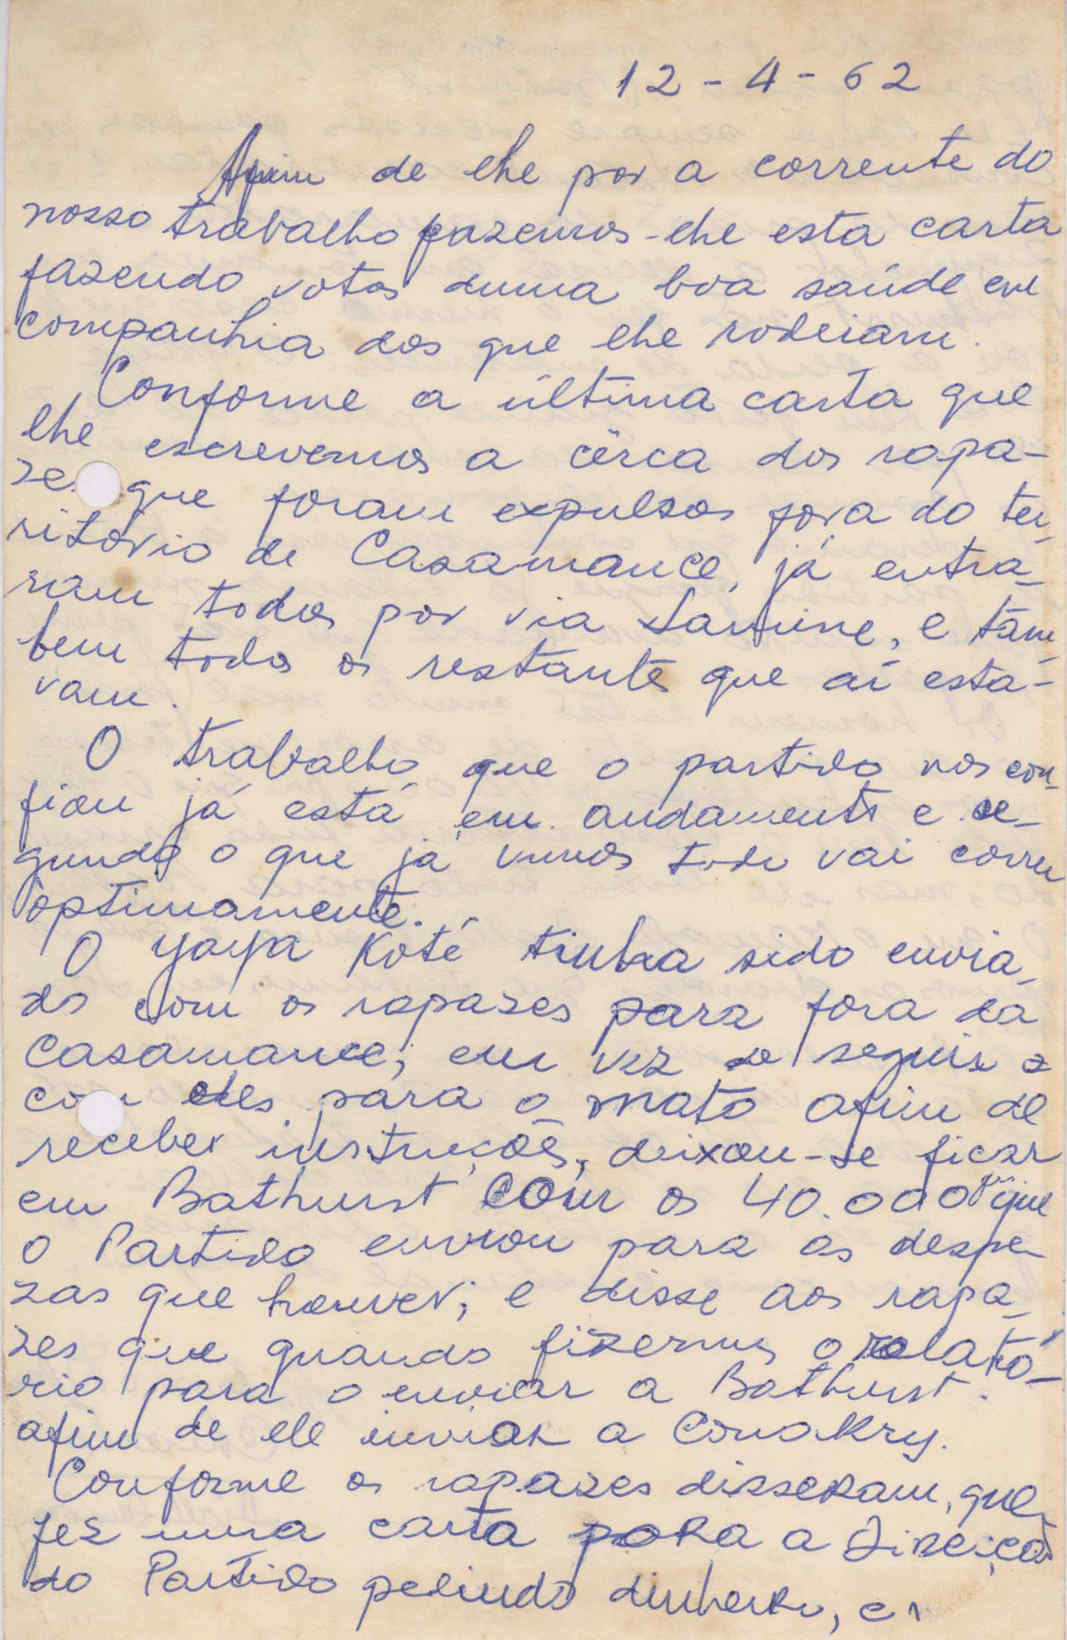 12-4-62
Afim de lhe por a corrente do
nosso trabalho fazemos-lhe esta carta
fazendo votos duma boa saúde em
companhia dos que lhe rodeiam.
Conforme a última carta que
lhe escrevemos a cêrca dos rapa-
ze que foram expulsos fora do ter-
ritório de Casamance, já entra-
ram todos por via Samine, e tam-
bem todos os restantes que aí esta-
vam.
O trabalho que o partido nos con-
fiou já está em andamento e se-
gundo o que já vimos tudo vai correr
optimamente.
O Yaya Koté tinha sido envia-
do com os rapazes para fora da
Casamance; em vez de seguir
com eles para o mato afim de
receber instruções, deixou-se ficar
em Bathurst com os 40.000 que
o Partido enviou para as despe-
zas que houver; e disse aos rapa-
zes que quando fizermos o relató-
rio para o enviar a Bathurst.
afim de ele inviar a Conakry.
Conforme os rapazes disseram, que
fez uma carta para a Direicão
do Partido pedindo dinheiro, e